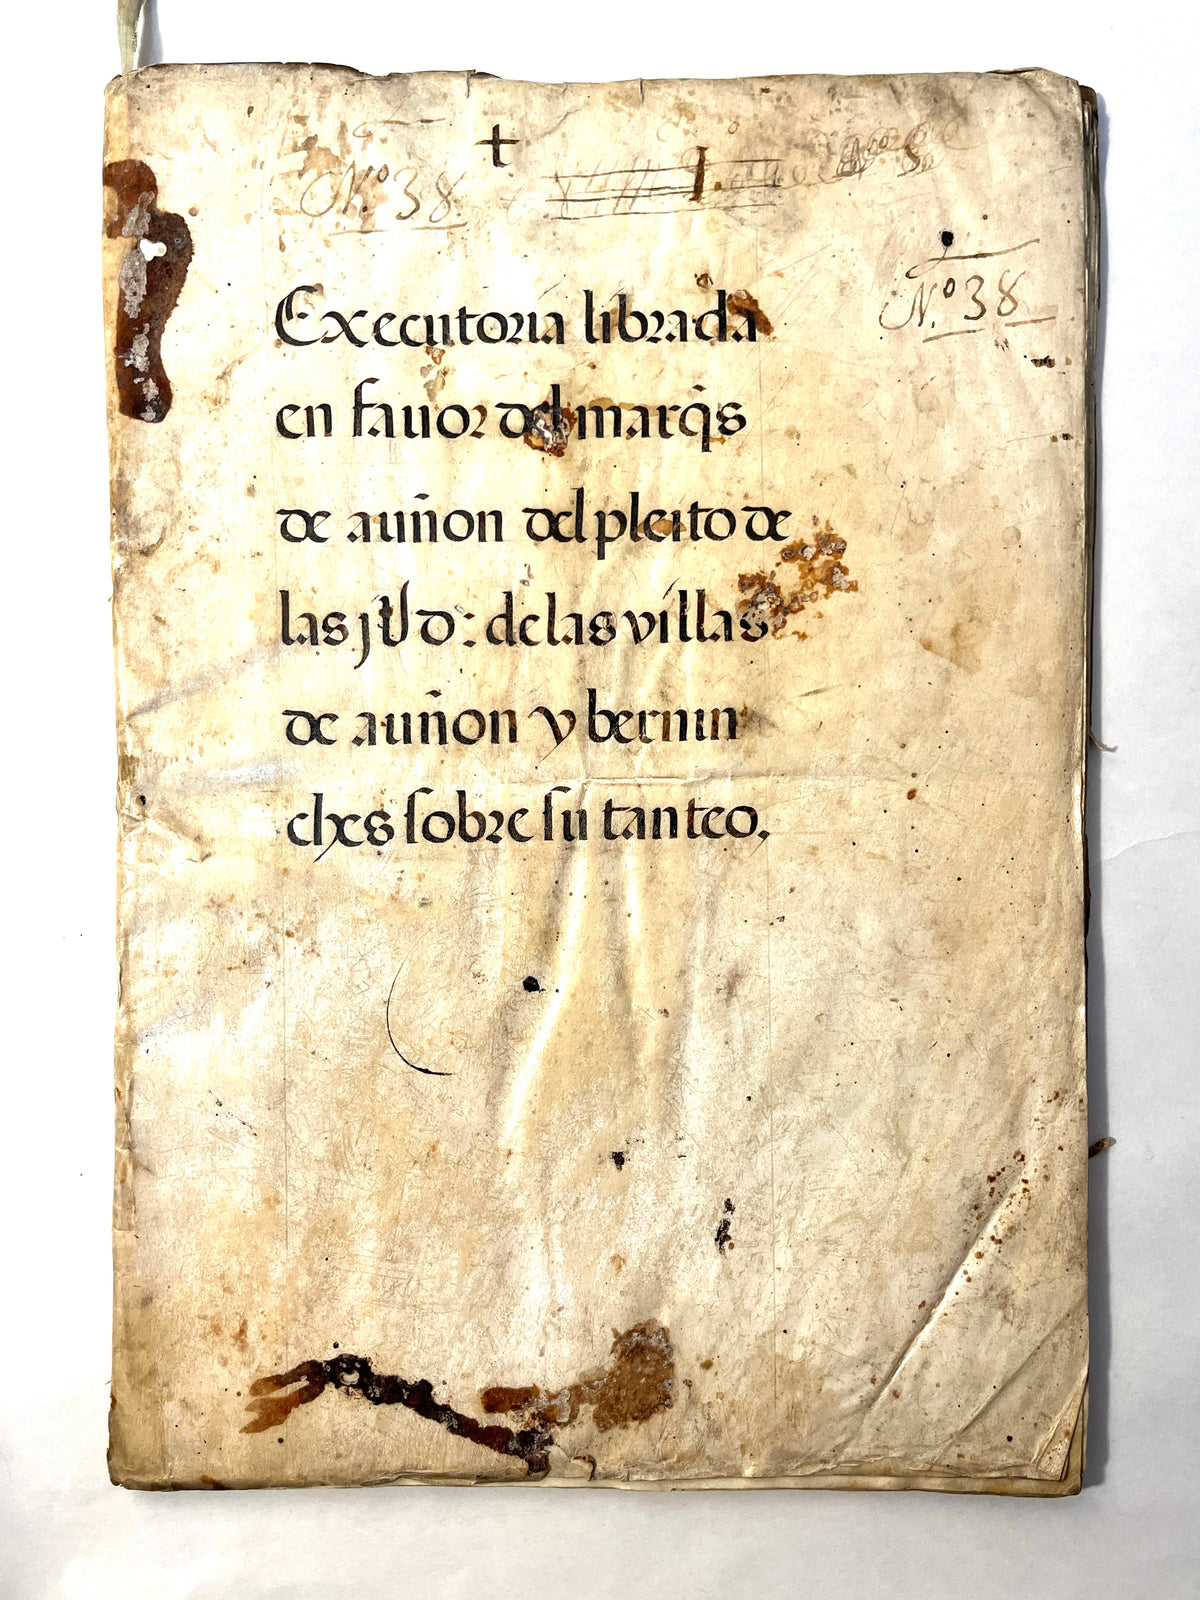 †
Nº 38
Nº 38
Executoria librada
en fauor del marq̃s
de auñon del pleito de
las jũd: de las villas
de auñon y bernin
ches sobre su tanteo,